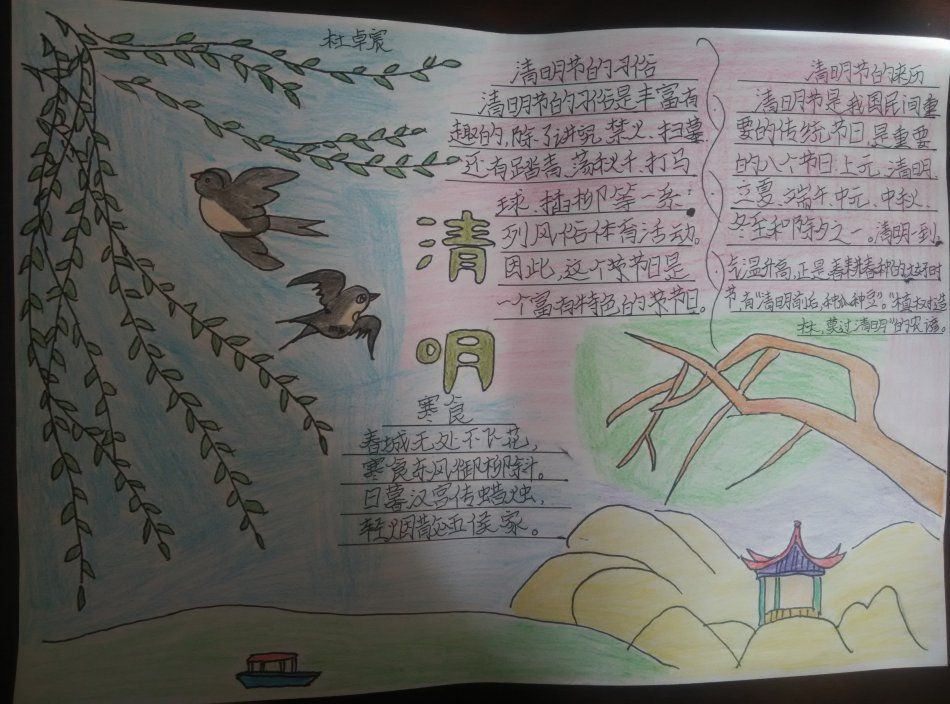 杜卓宸
清明节的习俗
清明节的习俗是丰富有
趣的,除了讲究禁火、扫墓,
还有踏青、荡秋千、打马
球、插柳等一系
列风俗体育活动。
因此,这个节日是
一个富有特色的节日。
清明节的来历
清明节是我国民间重
要的传统节日,是重要
的八个节日上元、清明、
立夏、端午、中元、中秋、
冬至和除夕之一。清明一到,
气温升高,正是春耕春种的大好时
节,有"清明前后,种瓜种豆"。"植树造
林,莫过清明"的农谚。
清
明
寒食
春城无处不飞花,
寒食东风御柳斜。
日暮汉宫传蜡烛,
轻烟散五侯家。